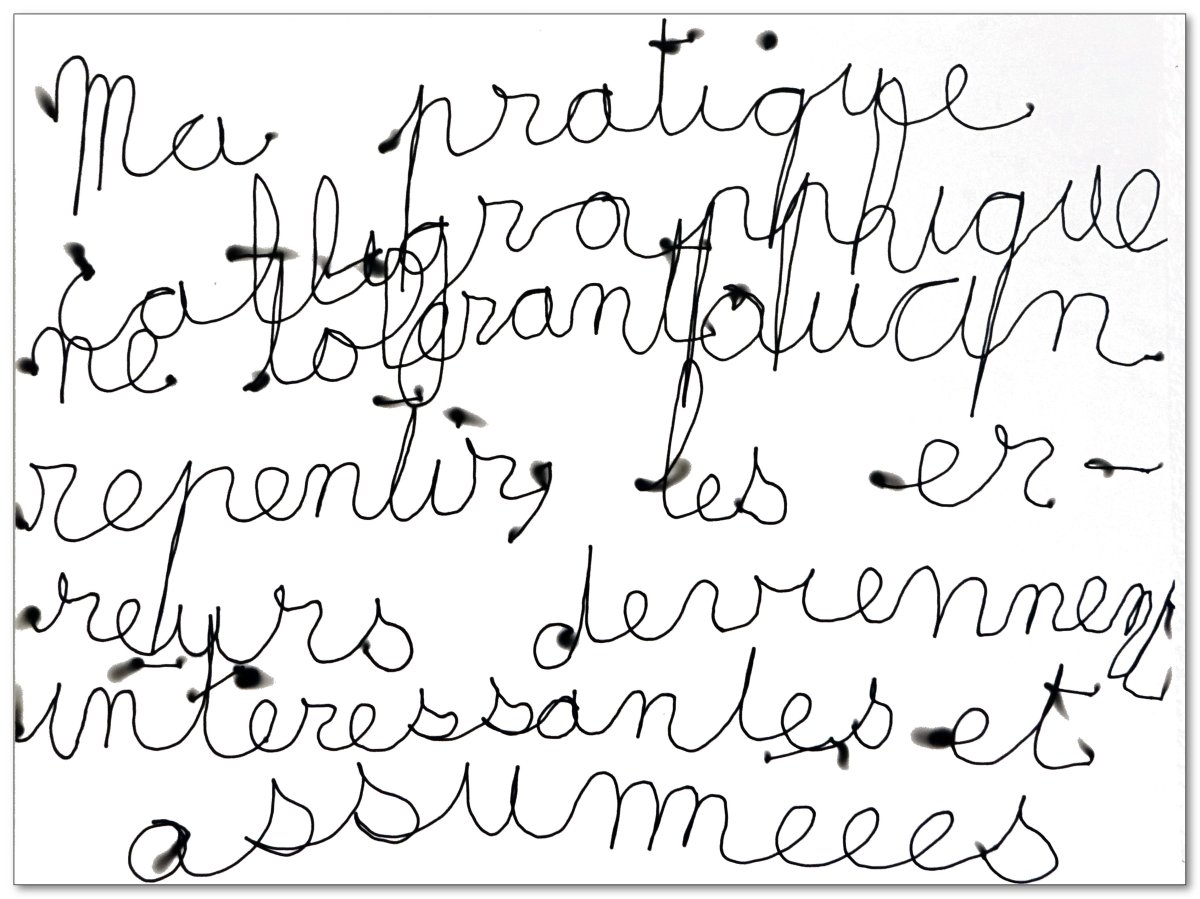 Ma pratique
calligraphique
ne tolerant aucun
repentir, les er-
reurs deviennent
interessantes et
assumeees